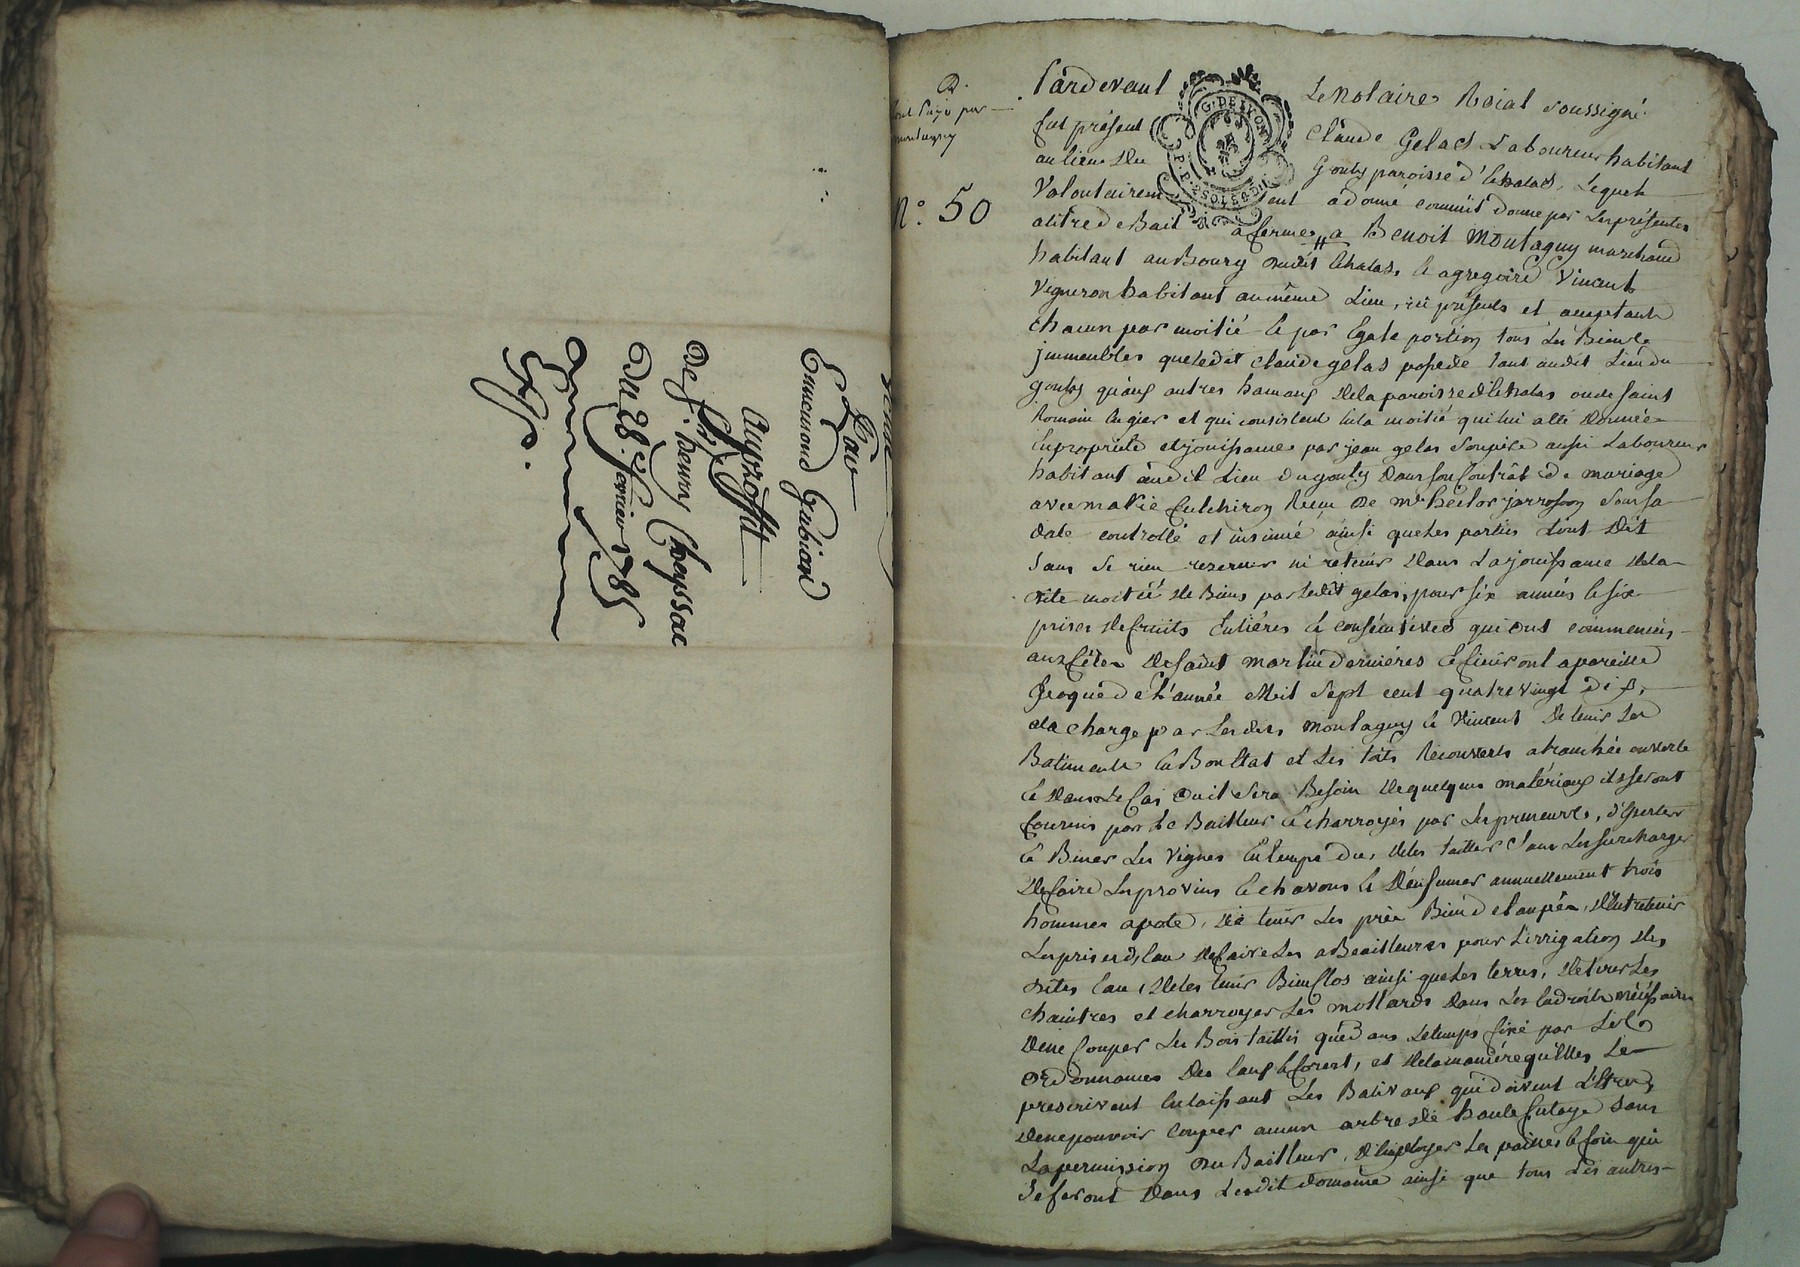 Vente
Par
Ennemond Gubiand
Au proffit
De Sr. henry Cheyssac
Du 28. fevrier 1785
R.
N.º 50
Pardevant Le Notaire Roial soussigné
fut présent Claude Gelas Laboureur habitant
au lieu du Gouty paroisse d'Echalas, Lequel
Volontairement a donné comm'il donne par Les présentes
a titre de Bail a ferme, a Benoit Montagny marchand
habitant au Bourg dudit Echalas, & a gregoire Vincent
Vigneron habitant au même Lieu, ici présents et acceptants
chacun par moitié & par Egale portion tous Les Biens &
jmmeubles que ledit Claude gelas possede tant audit Lieu du
gouty qu'aux autres hamaux de la paroisse d'Echalas ou de saint
Romain en gier et qui consistent en la moitié qui lui a été donnée
En propriété et jouissance par jean gelas son pere aussi Laboureur
habitant audit Lieu du gouty dans son Contrat de mariage
avec marie Culchiron Recu de me hector jarrosson sous sa
date controllé et insinué ainsi que les parties L'ont dit
sans se rien reserver ni retenir dans La jouissance de la
dite moitié de Biens par ledit gelas, pour six années & six
prises de fruits Entiéres & consécutives qui ont commencés
aux fêtes de saint martin derniéres & finiront a pareille
Epoque de L'année Mil sept cent quatre vingt dix,
a la charge par Les dits Montagny & Vincent De tenir Les
Batiments En Bon Etat et Les toits Recouverts a tranchée ouverte
& dans Le Cas ou il sera Besoin de quelques matériaux ils seront
fournis par Le Bailleur & charroyés par Les preneurs, d'
& Biner Les Vignes En temps du, de les tailler sans Les surcharger
De faire Les provins & chavons & d'en fumer annuellement trois
hommes , de tenir Les prés Bien , d'Entretenir
Les prises d'Eau de faire Les abeailleures pour L'irrigation des
dites Eau, de les tenir Bien Clos ainsi que Les terres, de tirer Les
chaintres et charroyer Les mollards dans Les Endroits nécessaires
De ne Couper Les Bois taillis que dans Le temps fixé par Les
ordonnances Des Eaux & forest, et de la maniére qu'Elles Le
prescrivent En laissant Les Balivaux qui doivent L'Etre,
De ne pouvoir Couper aucun arbre de haute futaye sans
La permission du Bailleur, d'Employer Les pailles & foin qui
se feront Dans Ledit domaine ainsi que tous Les autres